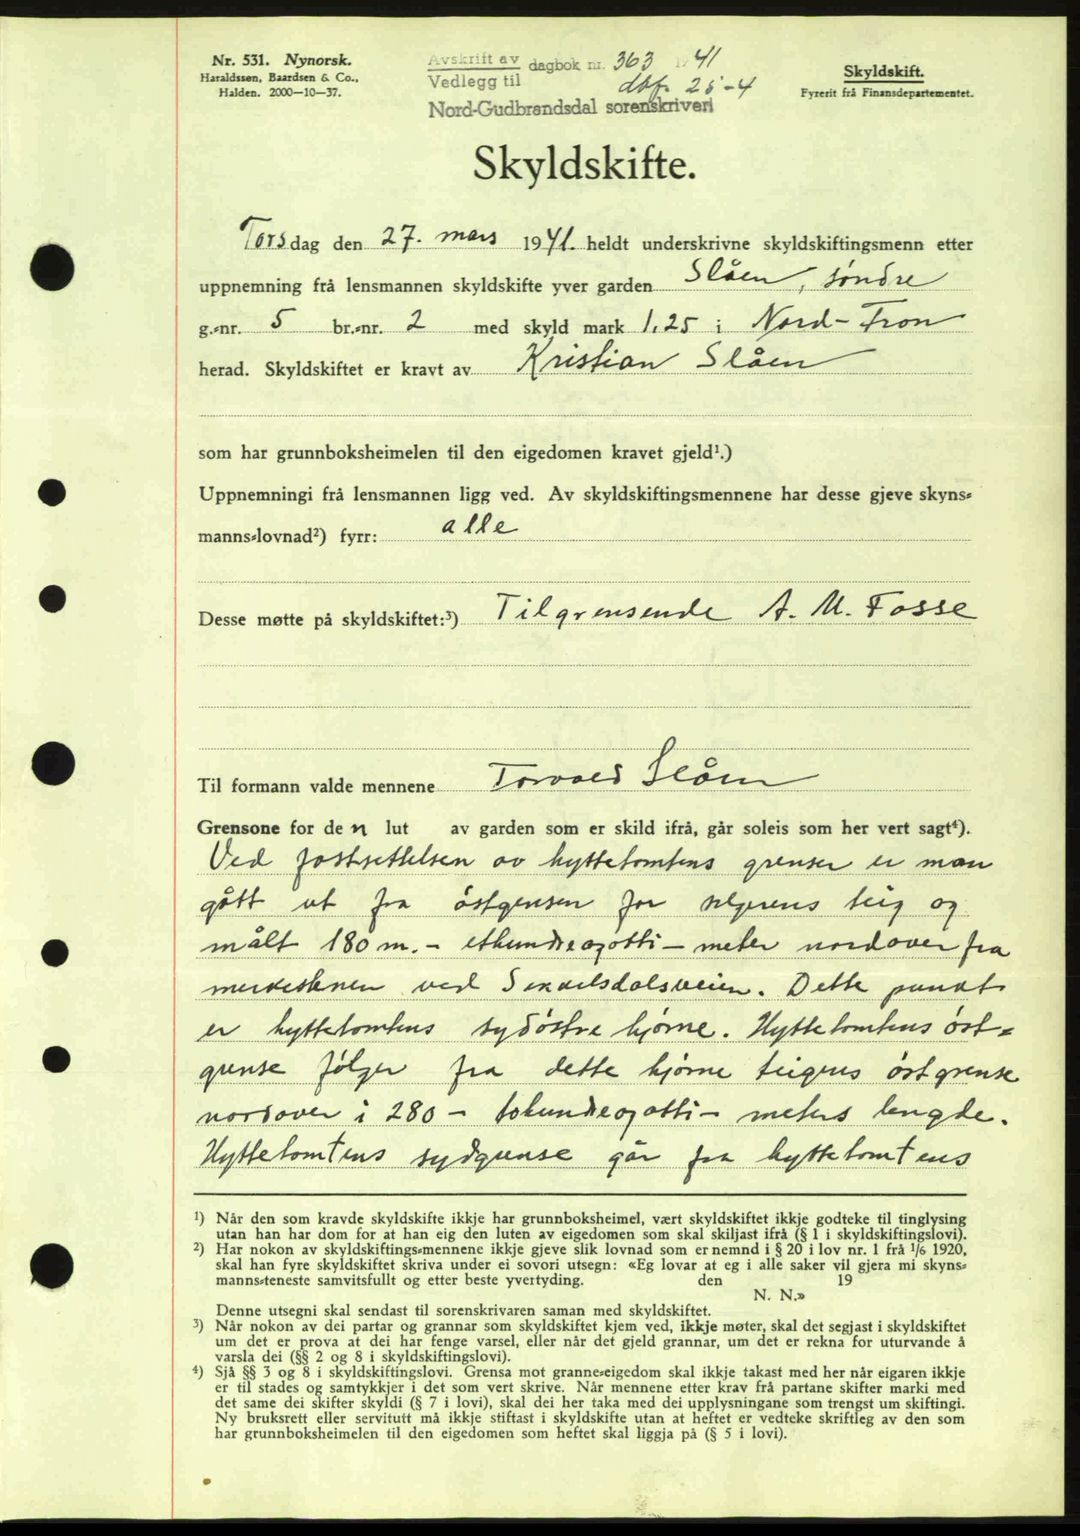 Nr. 531. Nynorsk.
Haraldssen, Baardsen & Co.,
Halden. 2000—10—37.
Avskrift av dagbok nr. 363 1941
Vedlegg til dbf. 25-4
Nord-Gudbrandsdal sorenskriveri
Skyldskift.
Fyrerit frå Finansdepartementet.
Skyldskifte.
Torsdag den 27. mars 1941. heldt underskrivne skyldskiftingsmenn etter
uppnemning frå lensmannen skyldskifte yver garden Slåen, söndre
g.-nr. 5 br.-nr. 2 med skyld mark 1,25 i Nord-Fron
herad. Skyldskiftet er kravt av Kristian Slåen
som har grunnboksheimelen til den eigedomen kravet gjeld¹.)
Uppnemningi frå lensmannen ligg ved. Av skyldskiftingsmennene har desse gjeve skyns-
manns-lovnad²) fyrr: alle
Desse møtte på skyldskiftet:³) Tilgrensende A. M. Fosse
Til formann valde mennene Torvald Slåen
Grensone for den lut av garden som er skild ifrå, går soleis som her vert sagt⁴).
Ved fastsettelsen av hyttetomtens grenser er man
gått ut fra östgrensen for selgerens teig og
målt 180 m. - etthundreogotti - meter nordover fra
merkestenen ved Sikkilsdalsveien. Dette punkt
er hyttetomtens sydöstre hjörne. Hyttetomtens öst-
grense fölger fra dette hjörne teigens östgrense
nordover i 280 - tohundreogotti - meters lengde.
Hyttetomtens sydgrense går fra hyttetomtens
¹) Når den som kravde skyldskifte ikkje har grunnboksheimel, vært skyldskiftet ikkje godteke til tinglysing
utan han har dom for at han eig den luten av eigedomen som skal skiljast ifrå (§ 1 i skyldskiftingslovi).
²) Har nokon av skyldskiftings-mennene ikkje gjeve slik lovnad som er nemnd i § 20 i lov nr. 1 frå 1/6 1920,
skal han fyre skyldskiftet skriva under ei sovori utsegn: «Eg lovar at eg i alle saker vil gjera mi skyns-
manns-teneste samvitsfullt og etter beste yvertyding. den 19
N. N.»
Denne utsegni skal sendast til sorenskrivaren saman med skyldskiftet.
³) Når nokon av dei partar og grannar som skyldskiftet kjem ved, ikkje møter, skal det segjast i skyldskiftet
um det er prova at dei har fenge varsel, eller når det gjeld grannar, um det er rekna for uturvande å
varsla dei (§§ 2 og 8 i skyldskiftingslovi).
⁴) Sjå §§ 3 og 8 i skyldskiftingslovi. Grensa mot granne-eigedom skal ikkje takast med her når eigaren ikkje
er til stades og samtykkjer i det som vert skrive. Når mennene etter krav frå partane skifter marki med
det same dei skifter skyldi (§ 7 i lovi), skal dei her taka med dei upplysningane som trengst um skiftingi.
Ny bruksrett eller servitutt må ikkje stiftast i skyldskifte utan at heftet er vedteke skriftleg av den som
har grunnboksheimelen til den eigedomen som heftet skal liggja på (§ 5 i lovi).